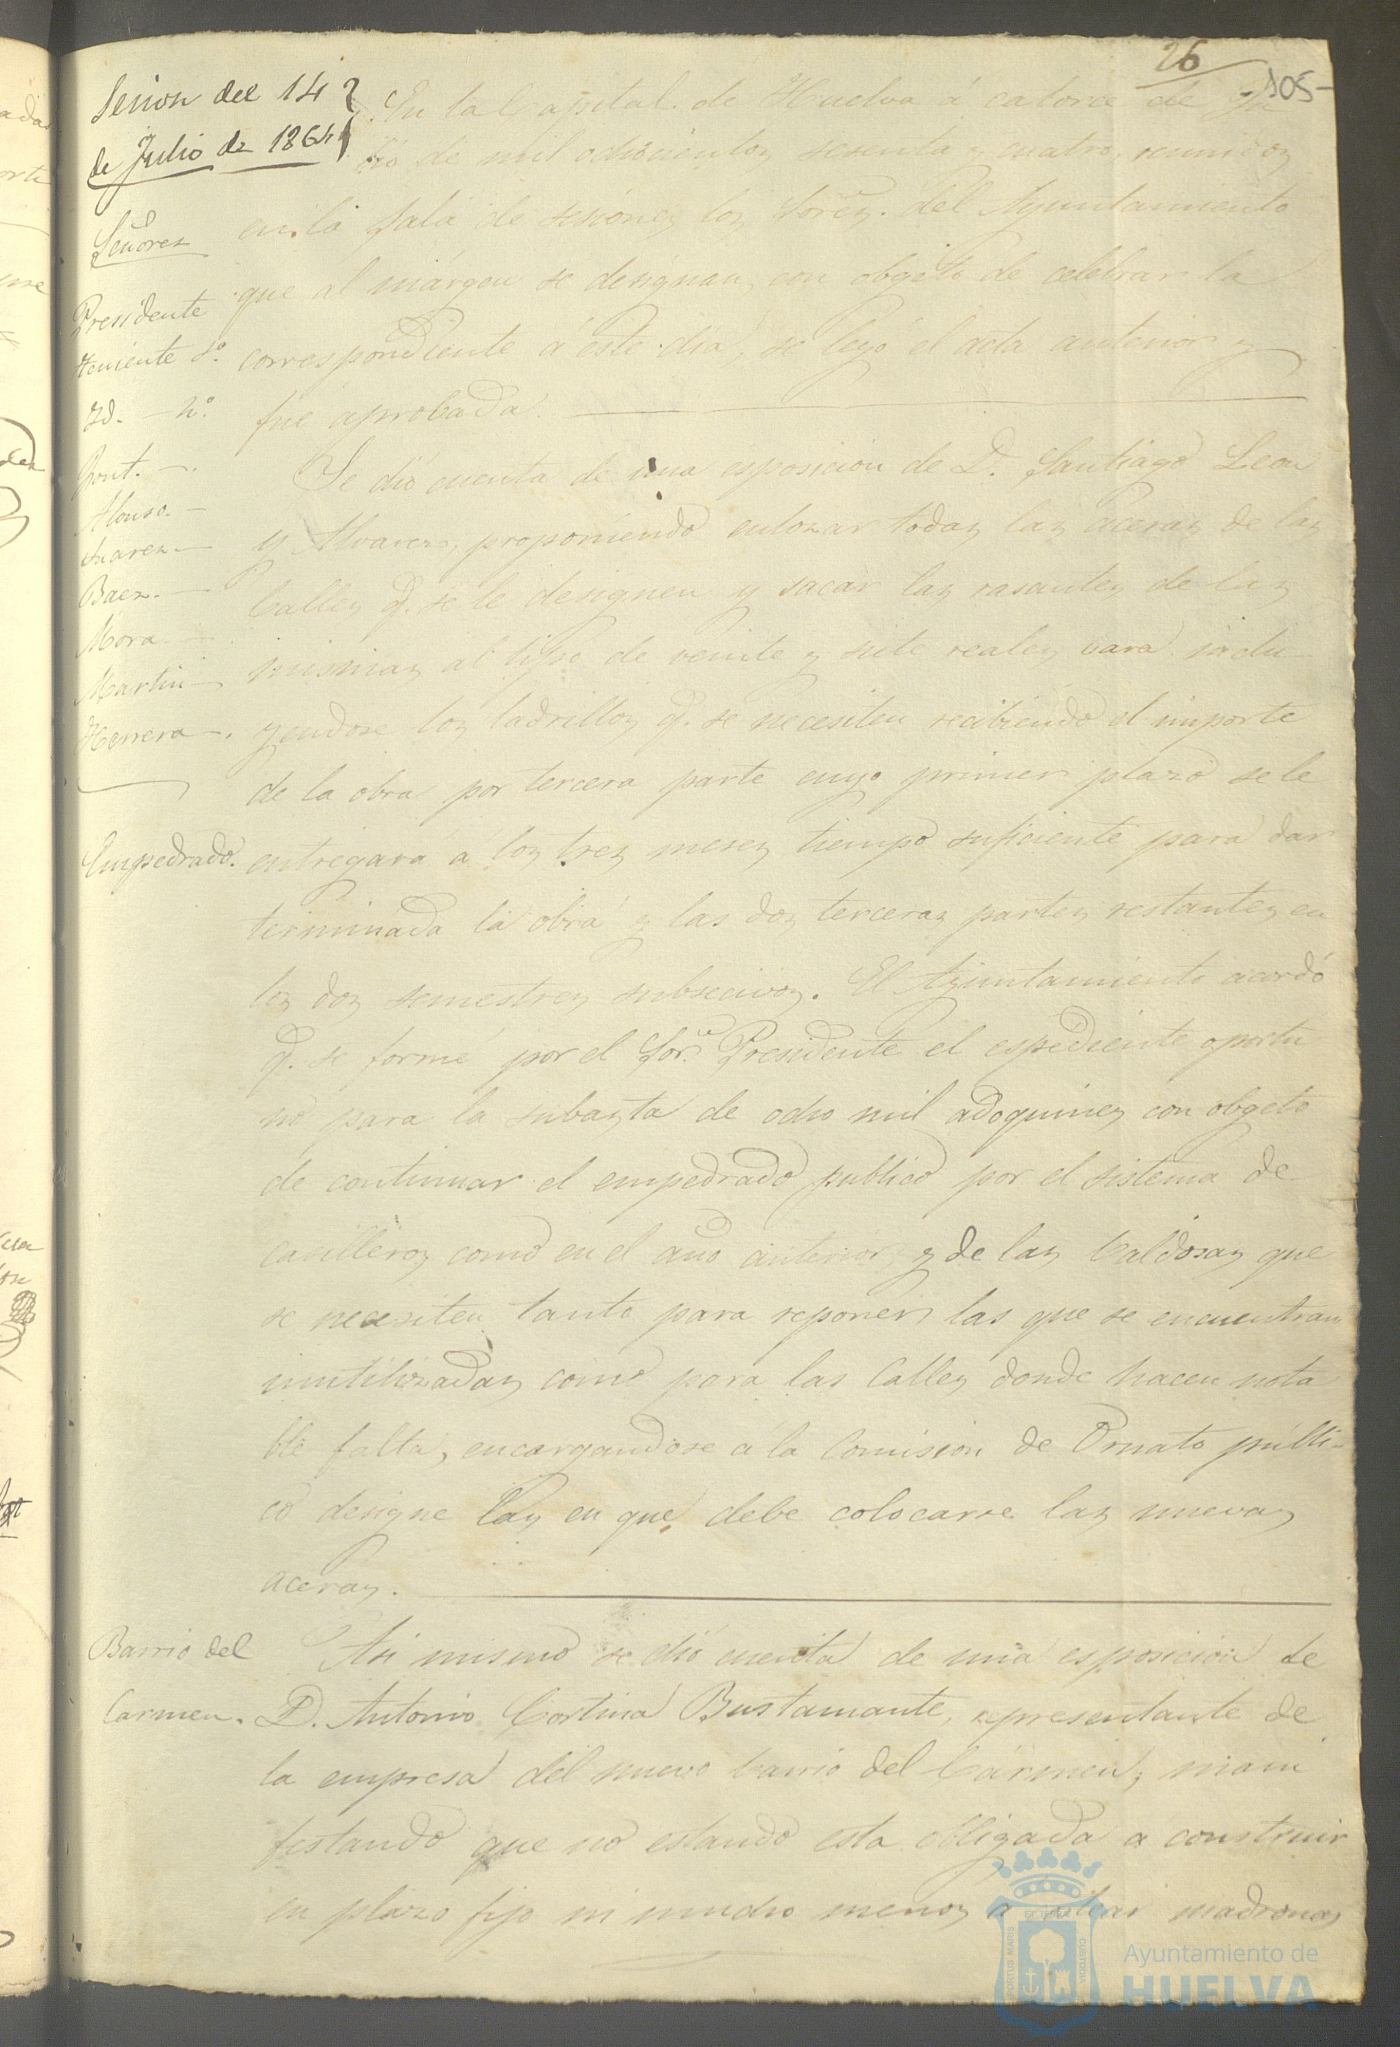 26
105
Sesion del 14
de Julio de 1864
Señores
Presidente
Teniente 1º
Yd. — 2º
Font. —
Alonso. —
Suarez —
Baez. —
Mora —
Martin —
Herrera —.
En la Capital de Huelva á catorce de Ju
lio de mil ochocientos sesenta y cuatro, reunidos
en la Sala de sesiones los Sores. del Ayuntamiento
que al márgen se designan, con obgeto de celebrar la
correspondiente á este dia, se leyó el acta anterior y
fué aprobada. —
Se dió cuenta de una esposicion de D. Santiago Leon
y Alvarez, proponiendo enlozar todas las aceras de las
Calles q. se le designen y sacar las rasantes de las
mismas al tipo de veinte y siete reales vara inclu
yendose los ladrillos q. se necesiten recibiendo el importe
de la obra por tercera parte cuyo primer plazo se le
Empedrado.
entregará á los tres meses tiempo suficiente para dar
terminada la obra y las dos terceras partes restantes en
los dos semestres subsecivos. El Ayuntamiento acordó
q. se forme por el Sor. Presidente el espediente oportu
no para la subasta de ocho mil adoquines con obgeto
de continuar el empedrado publico por el sistema de
casilleros como en el año anterior, y de las baldosas que
se necesiten tanto para reponer las que se encuentran
inutilizadas como para las Calles donde hacen nota
ble falta, encargandose á la Comision de Ornato públi-
co designe las en que debe colocarse las nuevas
aceras. —
Barrio del
Carmen.
Asi mismo se dió cuenta de una esposicion de
D. Antonio Cortina Bustamante, representante de
la empresa del nuevo barrio del Cármen, mani
festando que no estando esta obligada á construir
en plazo fijo ni mucho menos á sitiar madronas
PORTUS MARIS
ET TERRAE
CUSTODIA
Ayuntamiento de
HUELVA